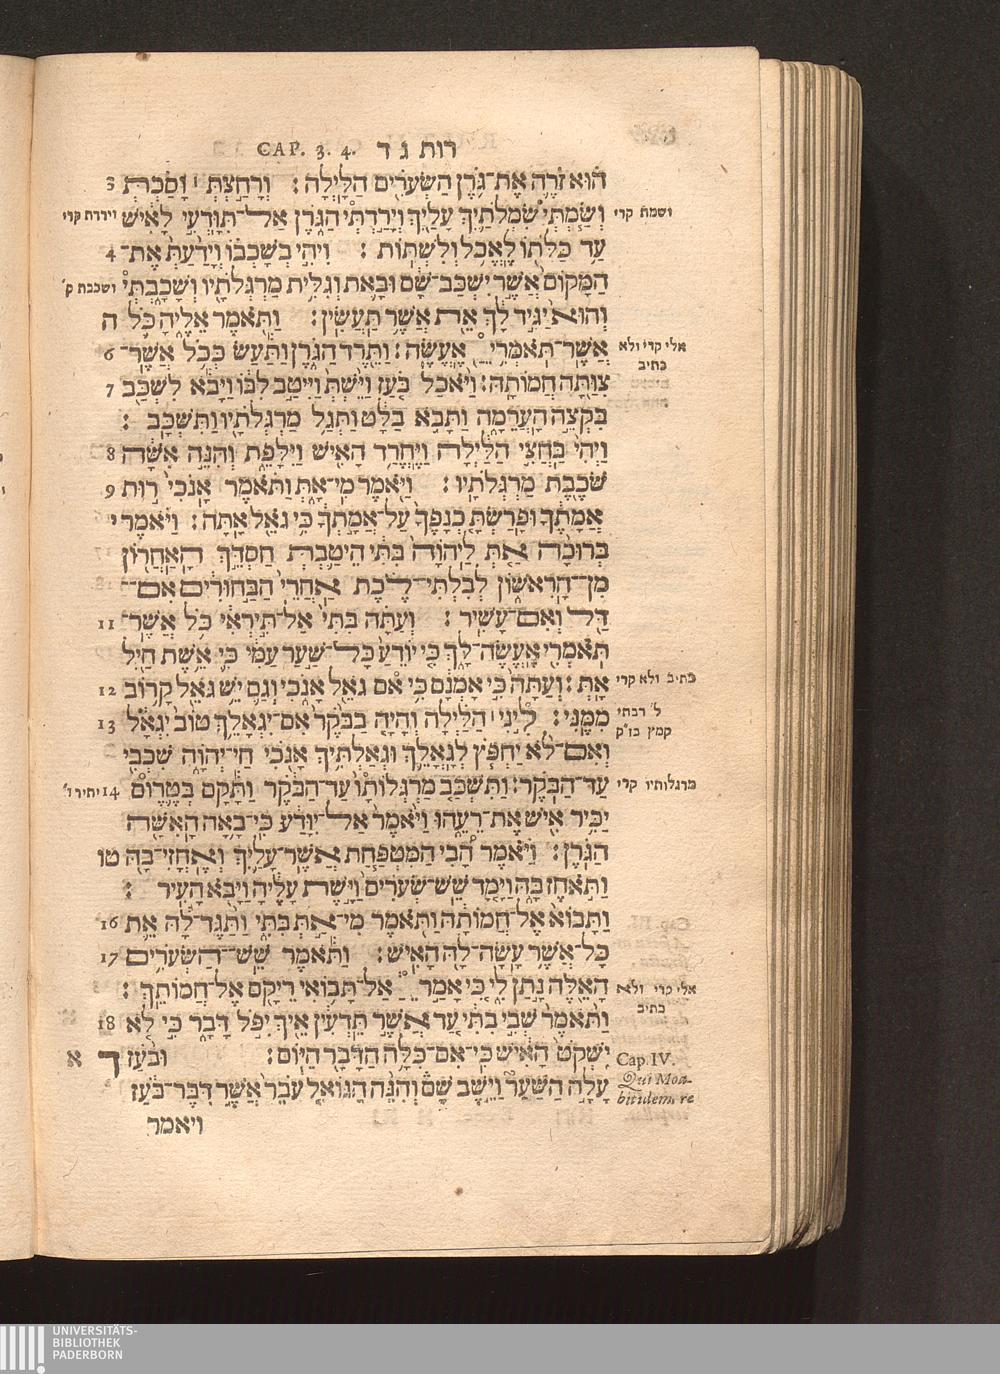 CAP. 3. 4. רות ג ד
הוּא זֹרֶה אֶת־גֹּרֶן הַשְּׂעֹרִים הַלָּיְלָה׃ וְרָחַצְתְּ ׀ וָסַכְתְּ 3
ושמת קרי וְשַׂמְתְּי שִׂמְלֹתַיִךְ עָלַיִךְ וְיָרַדְתְּי הַגֹּרֶן אַל־תִּוָּדְעִי לָאִישׁ וירדת קרי
עַד כַּלֹּתוֹ לֶאֱכֹל וְלִשְׁתּוֹת׃ וִיהִי בְשָׁכְבוֹ וְיָדַעַתְּ אֶת־ 4
הַמָּקוֹם אֲשֶׁר יִשְׁכַּב־שָׁם וּבָאת וְגִלִּית מַרְגְּלֹתָיו וְשָׁכָבְתְּי ושכבת ק׳
וְהוּא יַגִּיד לָךְ אֵת אֲשֶׁר תַּעֲשִׂין׃ וַתֹּאמֶר אֵלֶיהָ כֹּל ה
אלי קרי ולא כתיב אֲשֶׁר־תֹּאמְרִי ֵ ַ אֶעֱשֶׂה׃ וַתֵּרֶד הַגֹּרֶן וַתַּעַשׂ כְּכֹל אֲשֶׁר־ 6
צִוַּתָּה חֲמוֹתָהּ׃ וַיֹּאכַל בֹּעַז וַיֵּשְׁתְּ וַיִּיטַב לִבּוֹ וַיָּבֹא לִשְׁכַּב 7
בִּקְצֵה הָעֲרֵמָה וַתָּבֹא בַלָּט וַתְּגַל מַרְגְּלֹתָיו וַתִּשְׁכָּב׃
וַיְהִי בַּחֲצִי הַלַּיְלָה וַיֶּחֱרַד הָאִישׁ וַיִּלָּפֵת וְהִנֵּה אִשָּׁה 8
שֹׁכֶבֶת מַרְגְּלֹתָיו׃ וַיֹּאמֶר מִי־אָתְּ וַתֹּאמֶר אָנֹכִי רוּת 9
אֲמָתֶךָ וּפָרַשְׂתָּ כְנָפֶךָ עַל־אֲמָתְךָ כִּי גֹאֵל אָתָּה׃ וַיֹּאמֶר י
בְּרוּכָה אַתְּ לַיהוָה בִּתִּי הֵיטַבְתְּ חַסְדֵּךְ הָאַחֲרוֹן
מִן־הָרִאשׁוֹן לְבִלְתִּי־לֶכֶת אַחֲרֵי הַבַּחוּרִים אִם־
דַּל וְאִם־עָשִׁיר׃ וְעַתָּה בִּתִּי אַל־תִּירְאִי כֹּל אֲשֶׁר־ 11
תֹּאמְרִי אֶעֱשֶׂה־לָּךְ כִּי יוֹדֵעַ כָּל־שַׁעַר עַמִּי כִּי אֵשֶׁת חַיִל
כתיב ולא קרי אָתְּ׃ וְעַתָּה כִּי אָמְנָם כִּי אם גֹאֵל אָנֹכִי וְגַם יֵשׁ גֹּאֵל קָרוֹב 12
ל׳ רבתי קמץ בז״ק מִמֶּנִּי׃ לִינִי ׀ הַלַּיְלָה וְהָיָה בַבֹּקֶר אִם־יִגְאָלֵךְ טוֹב יִגְאָל 13
וְאִם־לֹא יַחְפֹּץ לְגָאֳלֵךְ וּגְאַלְתִּיךְ אָנֹכִי חַי־יְהוָה שִׁכְבִי
מרגלותיו קרי עַד־הַבֹּקֶר׃ וַתִּשְׁכַּב מַרְגְּלוֹתָו עַד־הַבֹּקֶר וַתָּקָם בְּטֶרֶום 14 יתיר ו׳
יַכִּיר אִישׁ אֶת־רֵעֵהוּ וַיֹּאמֶר אַל־יִוָּדַע כִּי־בָאָה הָאִשָּׁה
הַגֹּרֶן׃ וַיֹּאמֶר הָבִי הַמִּטְפַּחַת אֲשֶׁר־עָלַיִךְ וְאֶחֳזִי־בָהּ טו
וַתֹּאחֶז בָּהּ וַיָּמָד שֵׁשׁ־שְׂעֹרִים וַיָּשֶׁת עָלֶיהָ וַיָּבֹא הָעִיר׃
וַתָּבוֹא אֶל־חֲמוֹתָהּ וַתֹּאמֶר מִי־אַתְּ בִּתִּי וַתַּגֶּד־לָהּ אֵת 16
כָּל־אֲשֶׁר עָשָׂה־לָהּ הָאִישׁ׃ וַתֹּאמֶר שֵׁשׁ־הַשְּׂעֹרִים 17
אלי קרי ולא כתיב הָאֵלֶּה נָתַן לִי כִּי אָמַר ֵ ַ אַל־תָּבוֹאִי רֵיקָם אֶל־חֲמוֹתֵךְ׃
וַתֹּאמֶר שְׁבִי בִתִּי עַד אֲשֶׁר תֵּדְעִין אֵיךְ יִפֹּל דָּבָר כִּי לֹא 18
Cap. IV. יִשְׁקֹט הָאִישׁ כִּי־אִם־כִּלָּה הַדָּבָר הַיּוֹם׃ וּבֹעַז ד א
Qui Moabitidem, re עָלָה הַשַּׁעַר וַיֵּשֶׁב שָׁם וְהִנֵּה הַגּוֹאֵל עֹבֵר אֲשֶׁר דִּבֶּר־בֹּעַז
ויאמר
UNIVERSITÄTS-
BIBLIOTHEK
PADERBORN